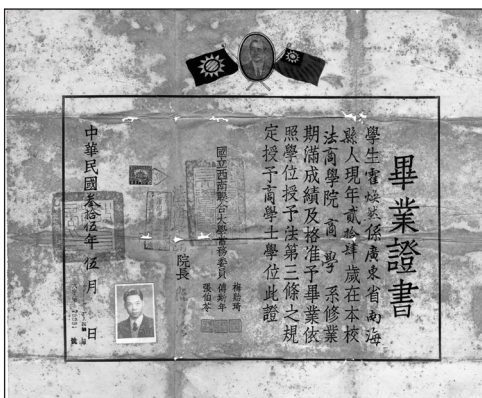 畢業證書
學生霍煥英係廣東省南海
縣人現年貳拾肆歲在本校
法商學院商學系修業
期滿成績及格准予畢業依
照學位授予法第三條之規
定授予商學士學位此證
國立西南聯合大學常務委員
梅貽琦
傅斯年
張伯苓
院長
中華民國叁拾伍年伍月 日